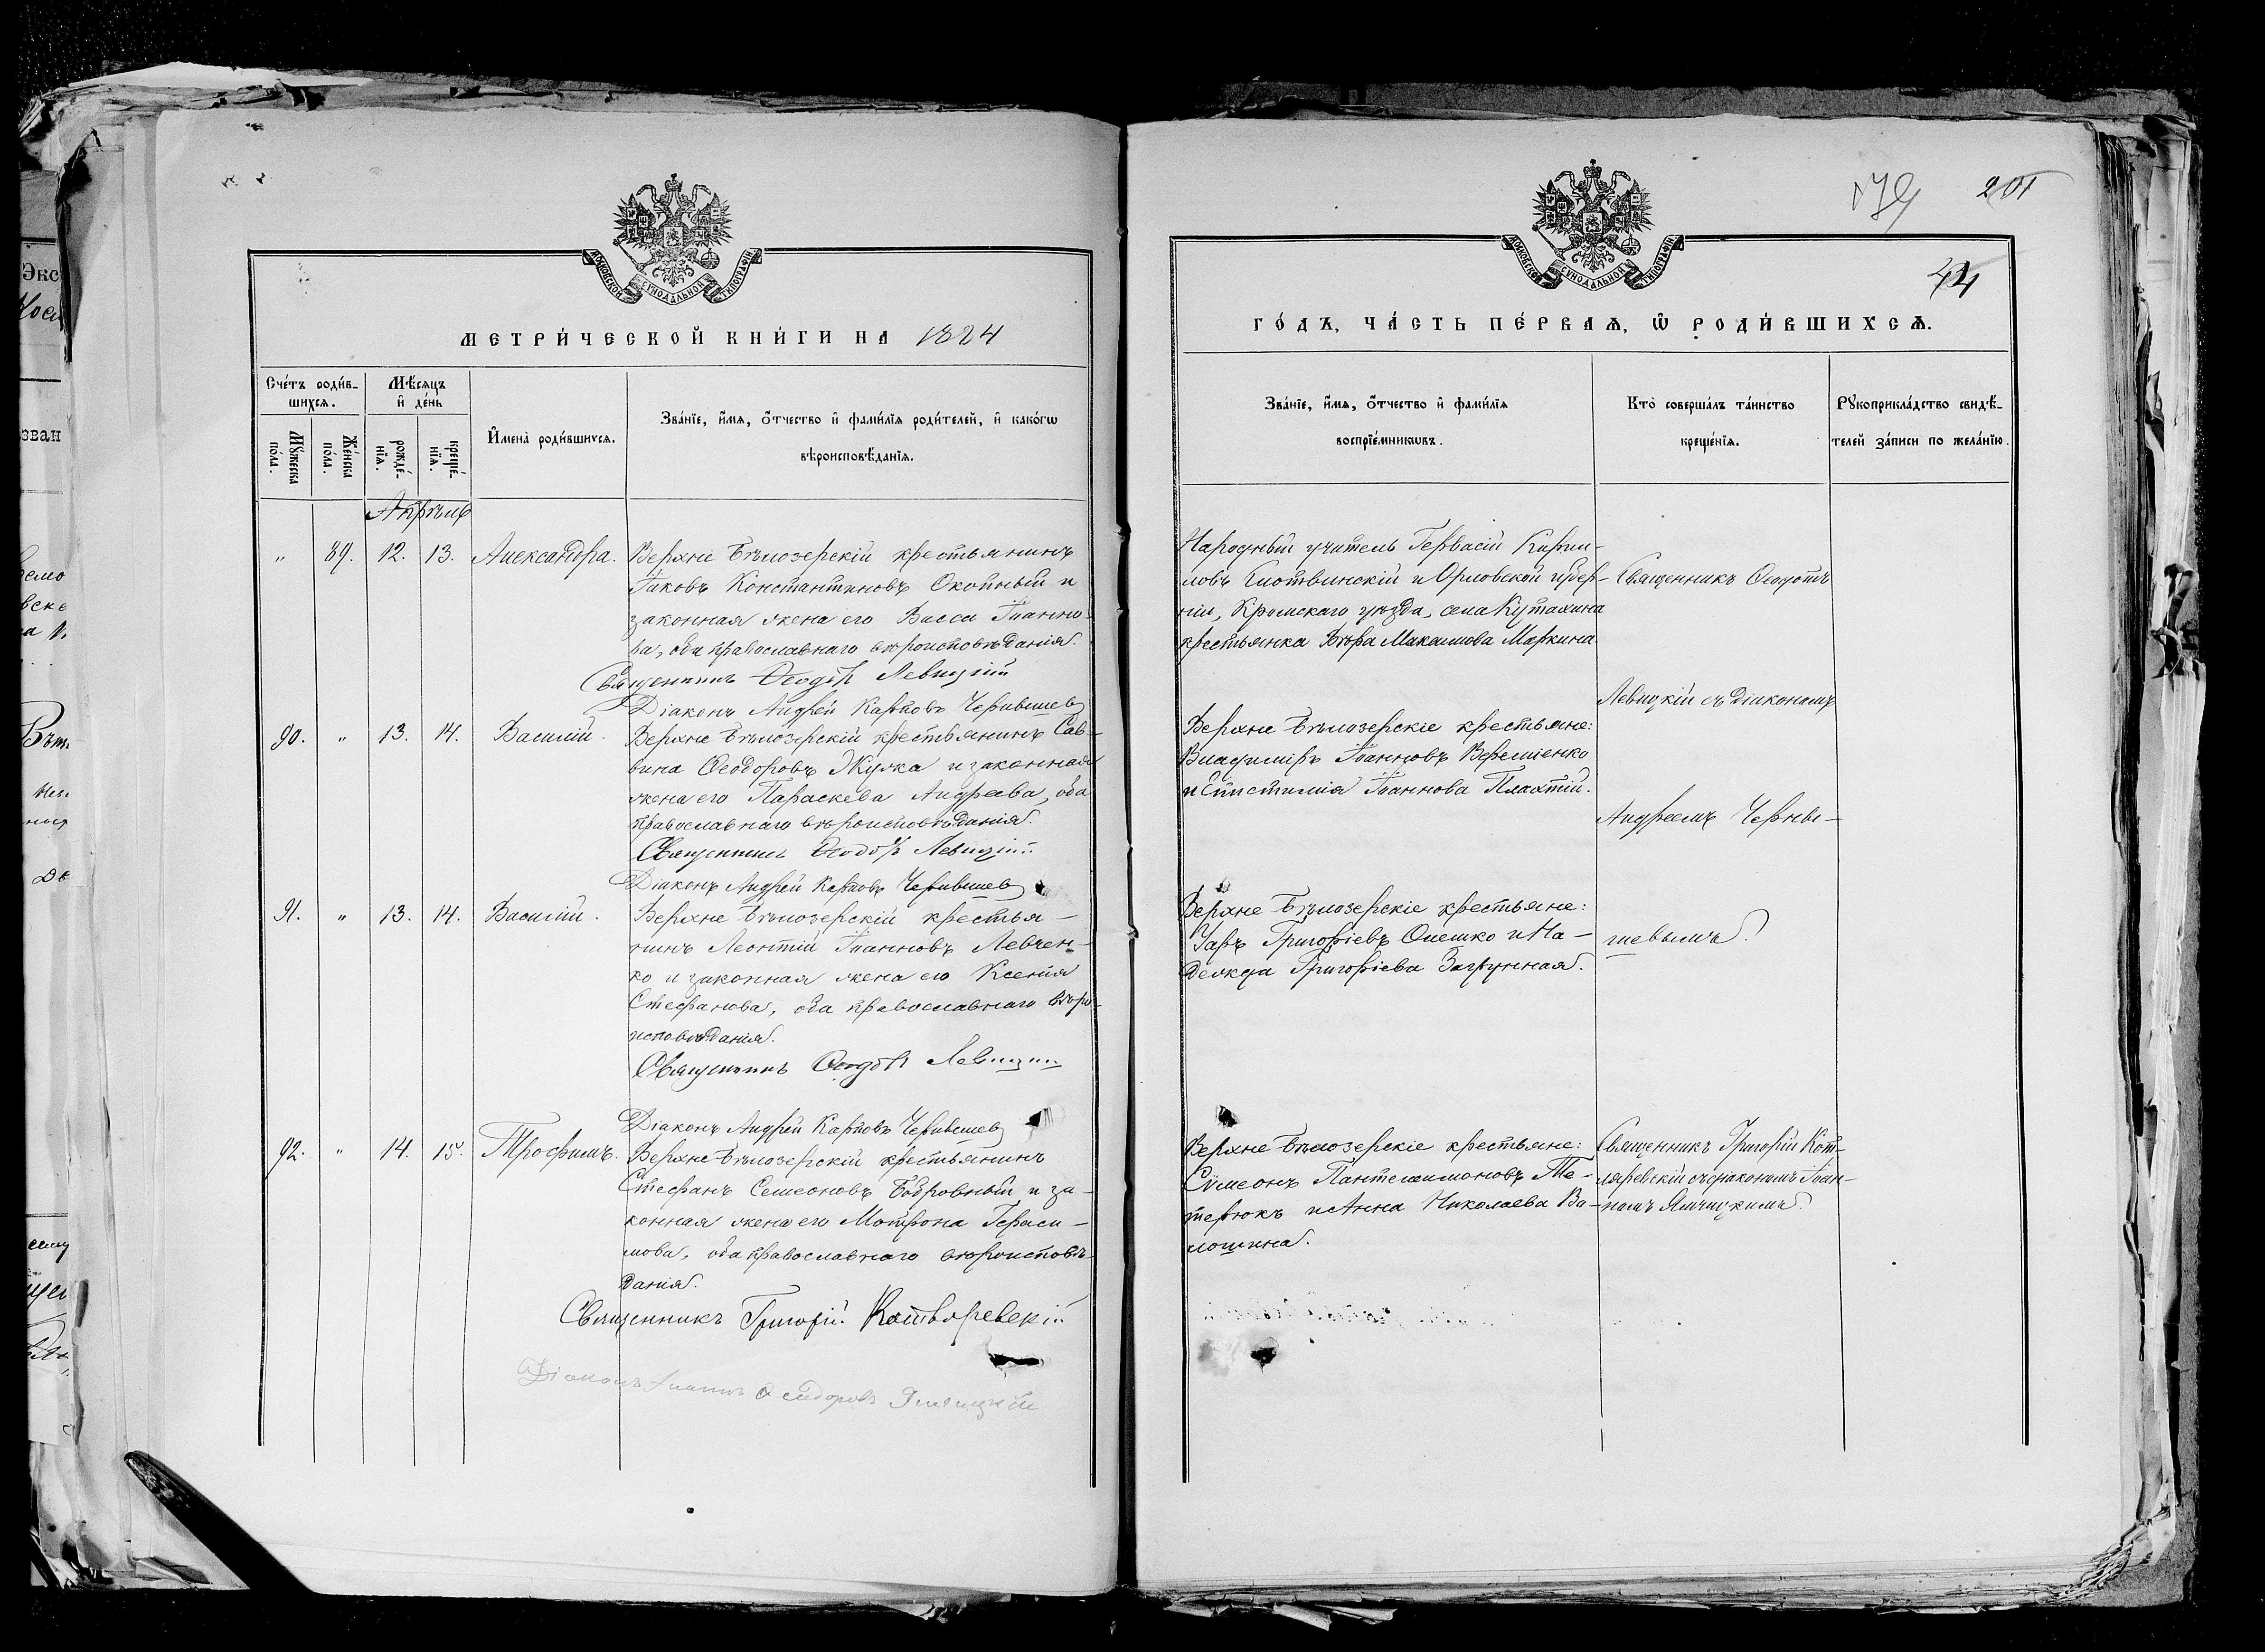 МЕТРИ́ЧЕСКОЙ КНИ́ГИ НА 1884
Сче́тъ роди́в-
шихсѧ.
Мѣ́сѧцъ
и҆ де́нь
Мꙋ́жеска
по́ла.
Же́нска
по́ла.
рожде́-
нїѧ.
креще́-
нїѧ.
И҆мена̀ роди́вшихсѧ.
Зва́нїе, и҆́мѧ, ѻ҆́тчество и҆ фами́лїѧ роди́телей, и҆ како́гѡ
вѣроисповѣ́данїѧ.
Апрѣль
" 89. 12. 13. Александра.
Верхне Бѣлозерскій крестьянинъ
Іаковъ Константиновъ Окопный и
законная жена его Васса Іоанно-
ва, оба православнаго вѣроисповѣданія.
Священникъ Ѳеодоръ Левицкій
Діаконъ Андрей Карповъ Чернышев
90. " 13. 14. Василій.
Верхне Бѣлозерскій крестьянинъ Сав-
вина Ѳеодоровъ Жулка и законная
жена его Параскева Андреева, оба
православнаго вѣроисповѣданія.
Священникъ Ѳеодоръ Левицкій
Діаконъ Андрей Карповъ Чернышев
91. " 13. 14. Василій.
Верхне Бѣлозерскій крестья-
нинъ Леонтій Іоанновъ Левчен-
ко и законная жена его Ксенія
Стефанова, оба православнаго вѣро-
исповѣданія.
Священникъ Ѳеодоръ Левицкій
Діаконъ Андрей Карповъ Чернышев
92. " 14. 15. Трофимъ.
Верхне Бѣлозерскій крестьянинъ
Стефанъ Семеоновъ Бобровный и за-
конная жена его Мотрона Гераси-
мова, оба православнаго вѣроисповѣ-
данія.
Священникъ Григорій Котляревскій
Діаконъ Іоаннъ Ѳеодоровъ Ямпицкій
201
44
ГО́ДЪ, ЧА́СТЬ ПЕ́РВАѦ, Ѡ҆ РОДИ́ВШИХСѦ.
Зва́нїе, и҆́мѧ, ѻ҆́тчество и҆ фами́лїѧ
воспрїе́мникѡвъ.
Кто̀ соверша́лъ та́инство
креще́нїѧ.
Рꙋкоприкла́дство свидѣ́-
телей за́писи по жела́нїю.
Народный учитель Гервасій Кирил-
ловъ Слотвинскій и Орловской губер-
ніи, Кромскаго уѣзда, села Кутахина
крестьянка Вѣра Макамова Маркина.
Священникъ Ѳеодотъ
Левицкій съ діакономъ
Андреемъ Черны-
шевымъ.
Верхне Бѣлозерскіе крестьяне:
Владиміръ Іоанновъ Веремiенко
и Епистимія Іоаннова Плахтій.
Верхне Бѣлозерскіе крестьяне:
Уаръ Григоріевъ Олешко и На-
дежда Григоріева Загрунная.
Верхне Бѣлозерскіе крестьяне:
Сѵмеонъ Пантелеимоновъ Те-
терюкъ и Анна Николаева Ва-
лошина.
Священникъ Григорій Кот-
ляревскій съ діакономъ Іоан-
номъ Ямпицкимъ.